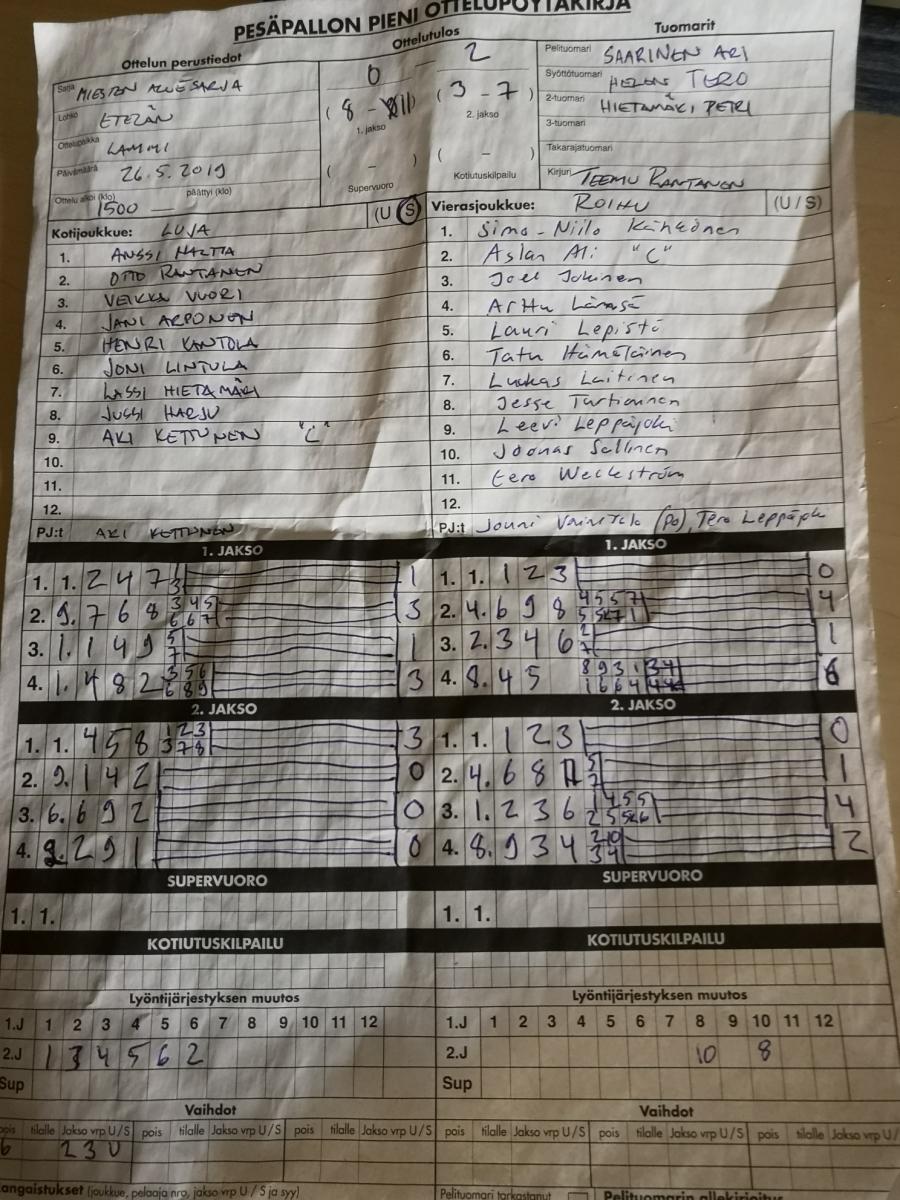 PESÄPALLON PIENI OTTELUPÖYTÄKIRJA
Ottelun perustiedot
Sarja MIESTEN ALUESARJA
Lohko ETELÄN
Ottelupaikka LAMMI
Päivämäärä 26.5.2019
Ottelu alkoi (klo) 1500 päättyi (klo)
Ottelutulos
0 – 2
(8 – 11) (3 – 7)
1. jakso 2. jakso
( – ) ( – )
Supervuoro Kotiutuskilpailu
Tuomarit
Pelituomari SAARINEN ARI
Syöttötuomari TERO
2-tuomari HIETAMÄKI PETRI
3-tuomari
Takarajatuomari
Kirjuri TEEMU RANTANEN
Kotijoukkue: LUJA (U S)
1. ANSSI
2. OTTO RANTANEN
3. VEIKKA VUORI
4. JANI ARPONEN
5. HENRI KANTOLA
6. JONI LINTULA
7. LASSI HIETAMÄKI
8. JUSSI HARJU
9. AKI KETTUNEN "C"
10.
11.
12.
PJ:t AKI KETTUNEN
Vierasjoukkue: ROIHU (U / S)
1. Simo-Niilo
2. Aslan Ali "C"
3. Joel Jokinen
4. Arttu Länsä
5. Lauri Lepistö
6. Tatu Hämäläinen
7. Luukas Laitinen
8. Jesse Turtiainen
9. Leevi Leppäjoki
10. Joonas Sallinen
11. Eero Weckström
12.
PJ:t Jouni Vainitalo (po), Tero
1. JAKSO
1. 1. 2 4 7 3 1
2. 9. 7 6 8 3 4 5 6 6 7 3
3. 1. 1 4 9 5 7 1
4. 1. 4 8 2 3 5 6 6 8 9 3
1. JAKSO
1. 1. 1 2 3 0
2. 4. 6 9 8 4
3. 2. 3 4 6 2 7 1
4. 8. 4 5 6
2. JAKSO
1. 1. 4 5 8 1 2 3 3 7 8 3
2. 9. 1 4 2 0
3. 6. 6 9 2 0
4. 9. 2 9 1 0
2. JAKSO
1. 1. 1 2 3 0
2. 4. 6 8 5 2 1
3. 1. 2 3 6 1 4 5 5 4
4. 8. 9 3 4 2 10 3 4 2
SUPERVUORO
1. 1.
SUPERVUORO
1. 1.
KOTIUTUSKILPAILU
KOTIUTUSKILPAILU
Lyöntijärjestyksen muutos
1.J 1 2 3 4 5 6 7 8 9 10 11 12
2.J 1 3 4 5 6 2
Sup
Lyöntijärjestyksen muutos
1.J 1 2 3 4 5 6 7 8 9 10 11 12
2.J 10 8
Sup
Vaihdot
tilalle Jakso vrp U / S pois tilalle Jakso vrp U / S pois tilalle Jakso vrp U / S
6 2 3 U
Vaihdot
pois tilalle Jakso vrp U / S pois tilalle Jakso vrp U / S pois tilalle Jakso vrp U /
angaistukset (joukkue, pelaaja nro, jakso vrp U / S ja syy)
Pelituomari tarkastanut
Pelituomarin allekirjoitus